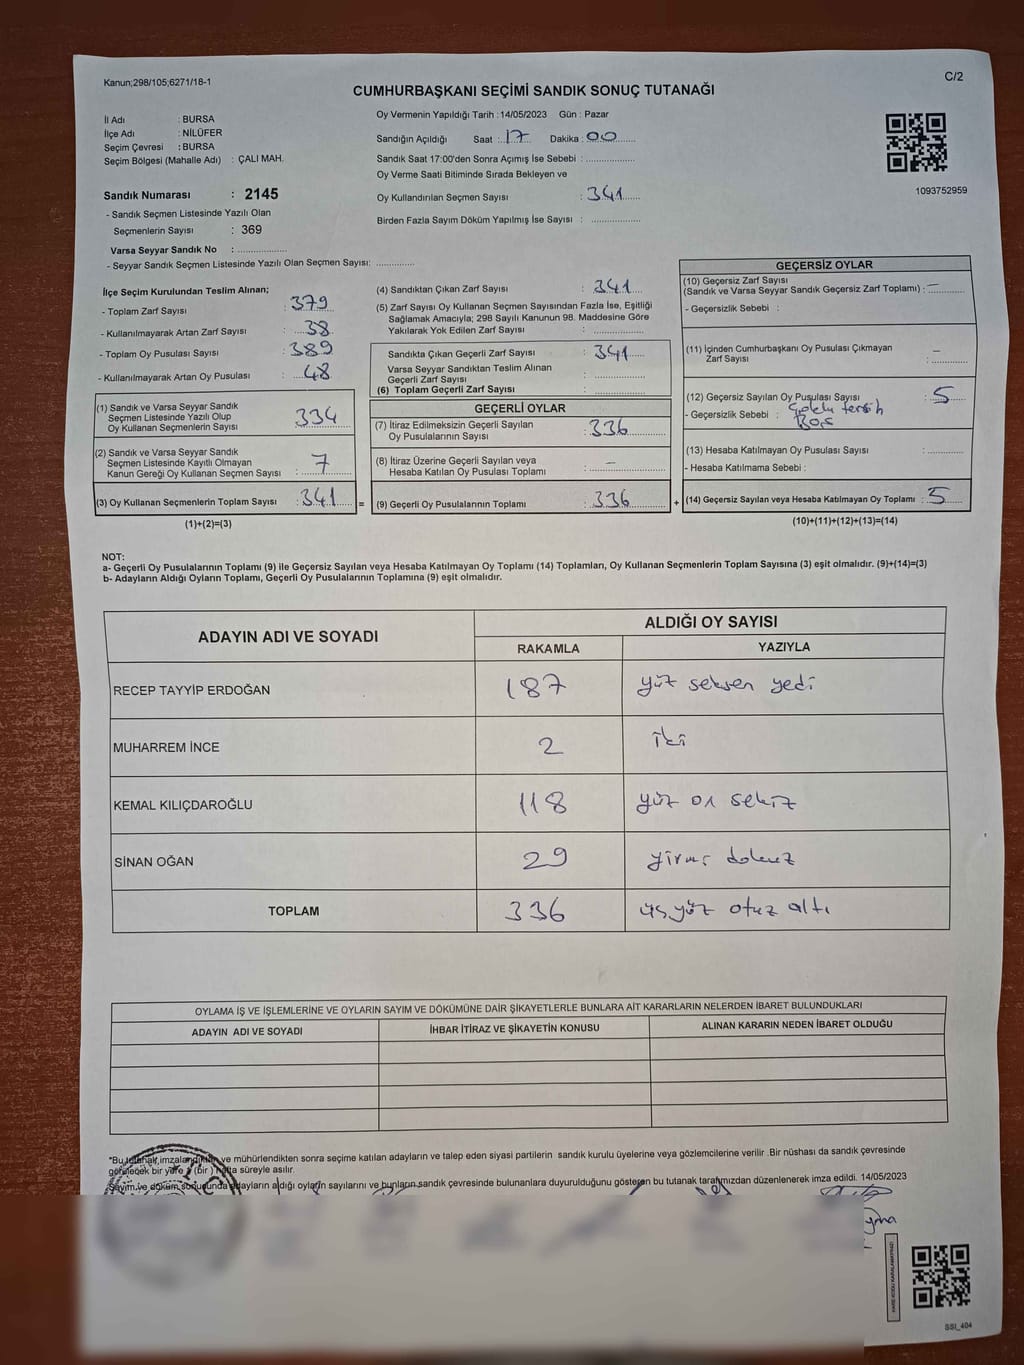 Kanun;298/105;6271/18-1
C/2
CUMHURBAŞKANI SEÇİMİ SANDIK SONUÇ TUTANAĞI
İl Adı : BURSA
İlçe Adı : NİLÜFER
Seçim Çevresi : BURSA
Seçim Bölgesi (Mahalle Adı) : ÇALI MAH.
Sandık Numarası : 2145
- Sandık Seçmen Listesinde Yazılı Olan
Seçmenlerin Sayısı : 369
Varsa Seyyar Sandık No : ..................
- Seyyar Sandık Seçmen Listesinde Yazılı Olan Seçmen Sayısı: .............
Oy Vermenin Yapıldığı Tarih : 14/05/2023 Gün : Pazar
Sandığın Açıldığı Saat : 17 Dakika : 00
Sandık Saat 17:00'den Sonra Açımış İse Sebebi : ................
Oy Verme Saati Bitiminde Sırada Bekleyen ve
Oy Kullandırılan Seçmen Sayısı : 341
Birden Fazla Sayım Döküm Yapılmış İse Sayısı : ................
1093752959
İlçe Seçim Kurulundan Teslim Alınan;
- Toplam Zarf Sayısı : 379
- Kullanılmayarak Artan Zarf Sayısı : 38
- Toplam Oy Pusulası Sayısı : 389
- Kullanılmayarak Artan Oy Pusulası : 48
(1) Sandık ve Varsa Seyyar Sandık
Seçmen Listesinde Yazılı Olup
Oy Kullanan Seçmenlerin Sayısı : 334
(2) Sandık ve Varsa Seyyar Sandık
Seçmen Listesinde Kayıtlı Olmayan
Kanun Gereği Oy Kullanan Seçmen Sayısı : 7
(3) Oy Kullanan Seçmenlerin Toplam Sayısı : 341 =
(1)+(2)=(3)
(4) Sandıktan Çıkan Zarf Sayısı : 341
(5) Zarf Sayısı Oy Kullanan Seçmen Sayısından Fazla İse, Eşitliği
Sağlamak Amacıyla; 298 Sayılı Kanunun 98. Maddesine Göre
Yakılarak Yok Edilen Zarf Sayısı : ................
Sandıkta Çıkan Geçerli Zarf Sayısı : 341
Varsa Seyyar Sandıktan Teslim Alınan
Geçerli Zarf Sayısı : ................
(6) Toplam Geçerli Zarf Sayısı : ................
GEÇERLİ OYLAR
(7) İtiraz Edilmeksizin Geçerli Sayılan
Oy Pusulalarının Sayısı : 336
(8) İtiraz Üzerine Geçerli Sayılan veya
Hesaba Katılan Oy Pusulası Toplamı : –
(9) Geçerli Oy Pusulalarının Toplamı : 336 +
GEÇERSİZ OYLAR
(10) Geçersiz Zarf Sayısı
(Sandık ve Varsa Seyyar Sandık Geçersiz Zarf Toplamı) : –
- Geçersizlik Sebebi :
(11) İçinden Cumhurbaşkanı Oy Pusulası Çıkmayan
Zarf Sayısı : –
(12) Geçersiz Sayılan Oy Pusulası Sayısı : 5
- Geçersizlik Sebebi : Çoklu tercih
Boş
(13) Hesaba Katılmayan Oy Pusulası Sayısı : ............
- Hesaba Katılmama Sebebi :
(14) Geçersiz Sayılan veya Hesaba Katılmayan Oy Toplamı : 5
(10)+(11)+(12)+(13)=(14)
NOT:
a- Geçerli Oy Pusulalarının Toplamı (9) ile Geçersiz Sayılan veya Hesaba Katılmayan Oy Toplamı (14) Toplamları, Oy Kullanan Seçmenlerin Toplam Sayısına (3) eşit olmalıdır. (9)+(14)=(3)
b- Adayların Aldığı Oyların Toplamı, Geçerli Oy Pusulalarının Toplamına (9) eşit olmalıdır.
ADAYIN ADI VE SOYADI
ALDIĞI OY SAYISI
RAKAMLA YAZIYLA
RECEP TAYYİP ERDOĞAN 187 yüz seksen yedi
MUHARREM İNCE 2 iki
KEMAL KILIÇDAROĞLU 118 yüz on sekiz
SİNAN OĞAN 29 yirmi dokuz
TOPLAM 336 üçyüz otuz altı
OYLAMA İŞ VE İŞLEMLERİNE VE OYLARIN SAYIM VE DÖKÜMÜNE DAİR ŞİKAYETLERLE BUNLARA AİT KARARLARIN NELERDEN İBARET BULUNDUKLARI
ADAYIN ADI VE SOYADI İHBAR İTİRAZ VE ŞİKAYETİN KONUSU ALINAN KARARIN NEDEN İBARET OLDUĞU
"Bu tutanak, imzalandıktan ve mühürlendikten sonra seçime katılan adayların ve talep eden siyasi partilerin sandık kurulu üyelerine veya gözlemcilerine verilir .Bir nüshası da sandık çevresinde
görülecek bir yere 1 (bir) hafta süreyle asılır.
Sayım ve döküm sonucunda adayların aldığı oyların sayılarını ve bunların sandık çevresinde bulunanlara duyurulduğunu gösteren bu tutanak tarafımızdan düzenlenerek imza edildi. 14/05/2023
SSI_404